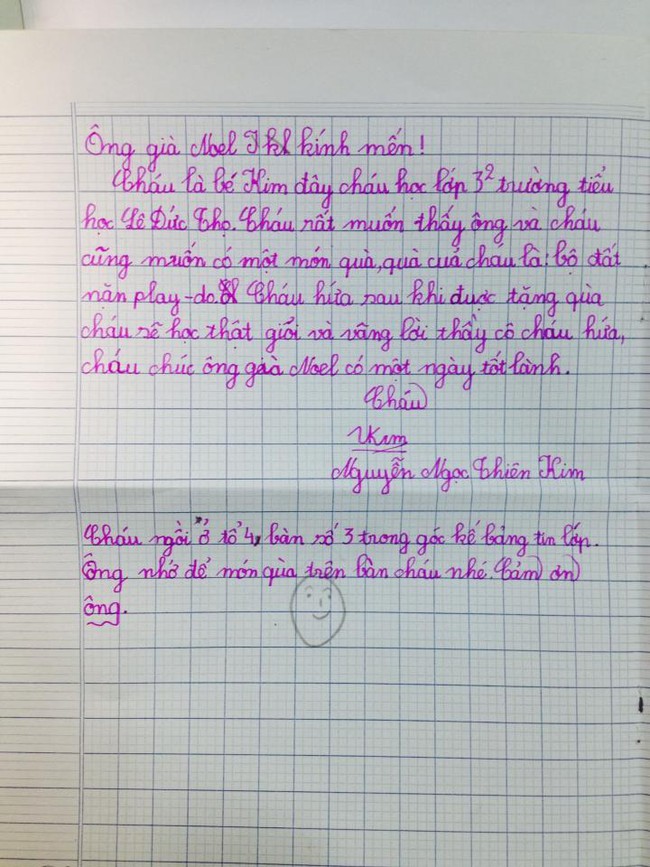 Ông già Noel kính mến!
Cháu là bé Kim đây cháu học lớp 3² trường tiểu
học Lê Đức Thọ. Cháu rất muốn thấy ông và cháu
cũng muốn có một món quà, quà cuả cháu là: bộ đất
nặn play-do. Cháu hứa sau khi được tặng qùa
cháu sẽ học thật giỏi và vâng lời thầy cô cháu hứa,
cháu chúc ông già Noel có một ngày tốt lành.
Cháu
Kim
Nguyễn Ngọc Thiên Kim
Cháu ngồi ở tổ 4, bàn số 3 trong góc kế bảng tin lớp.
Ông nhớ để món qùa trên bàn cháu nhé. Cảm ơn
ông.